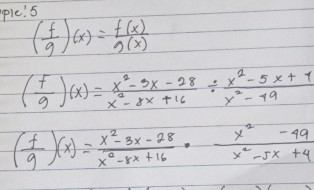 ple! 5
(f/g)(x) = f(x)/g(x)
(f/g)(x) = x² - 3x - 28 / x² - 8x + 16 ÷ x² - 5x + 4 / x² - 49
(f/g)(x) = x² - 3x - 28 / x² - 8x + 16 • x² - 49 / x² - 5x + 4